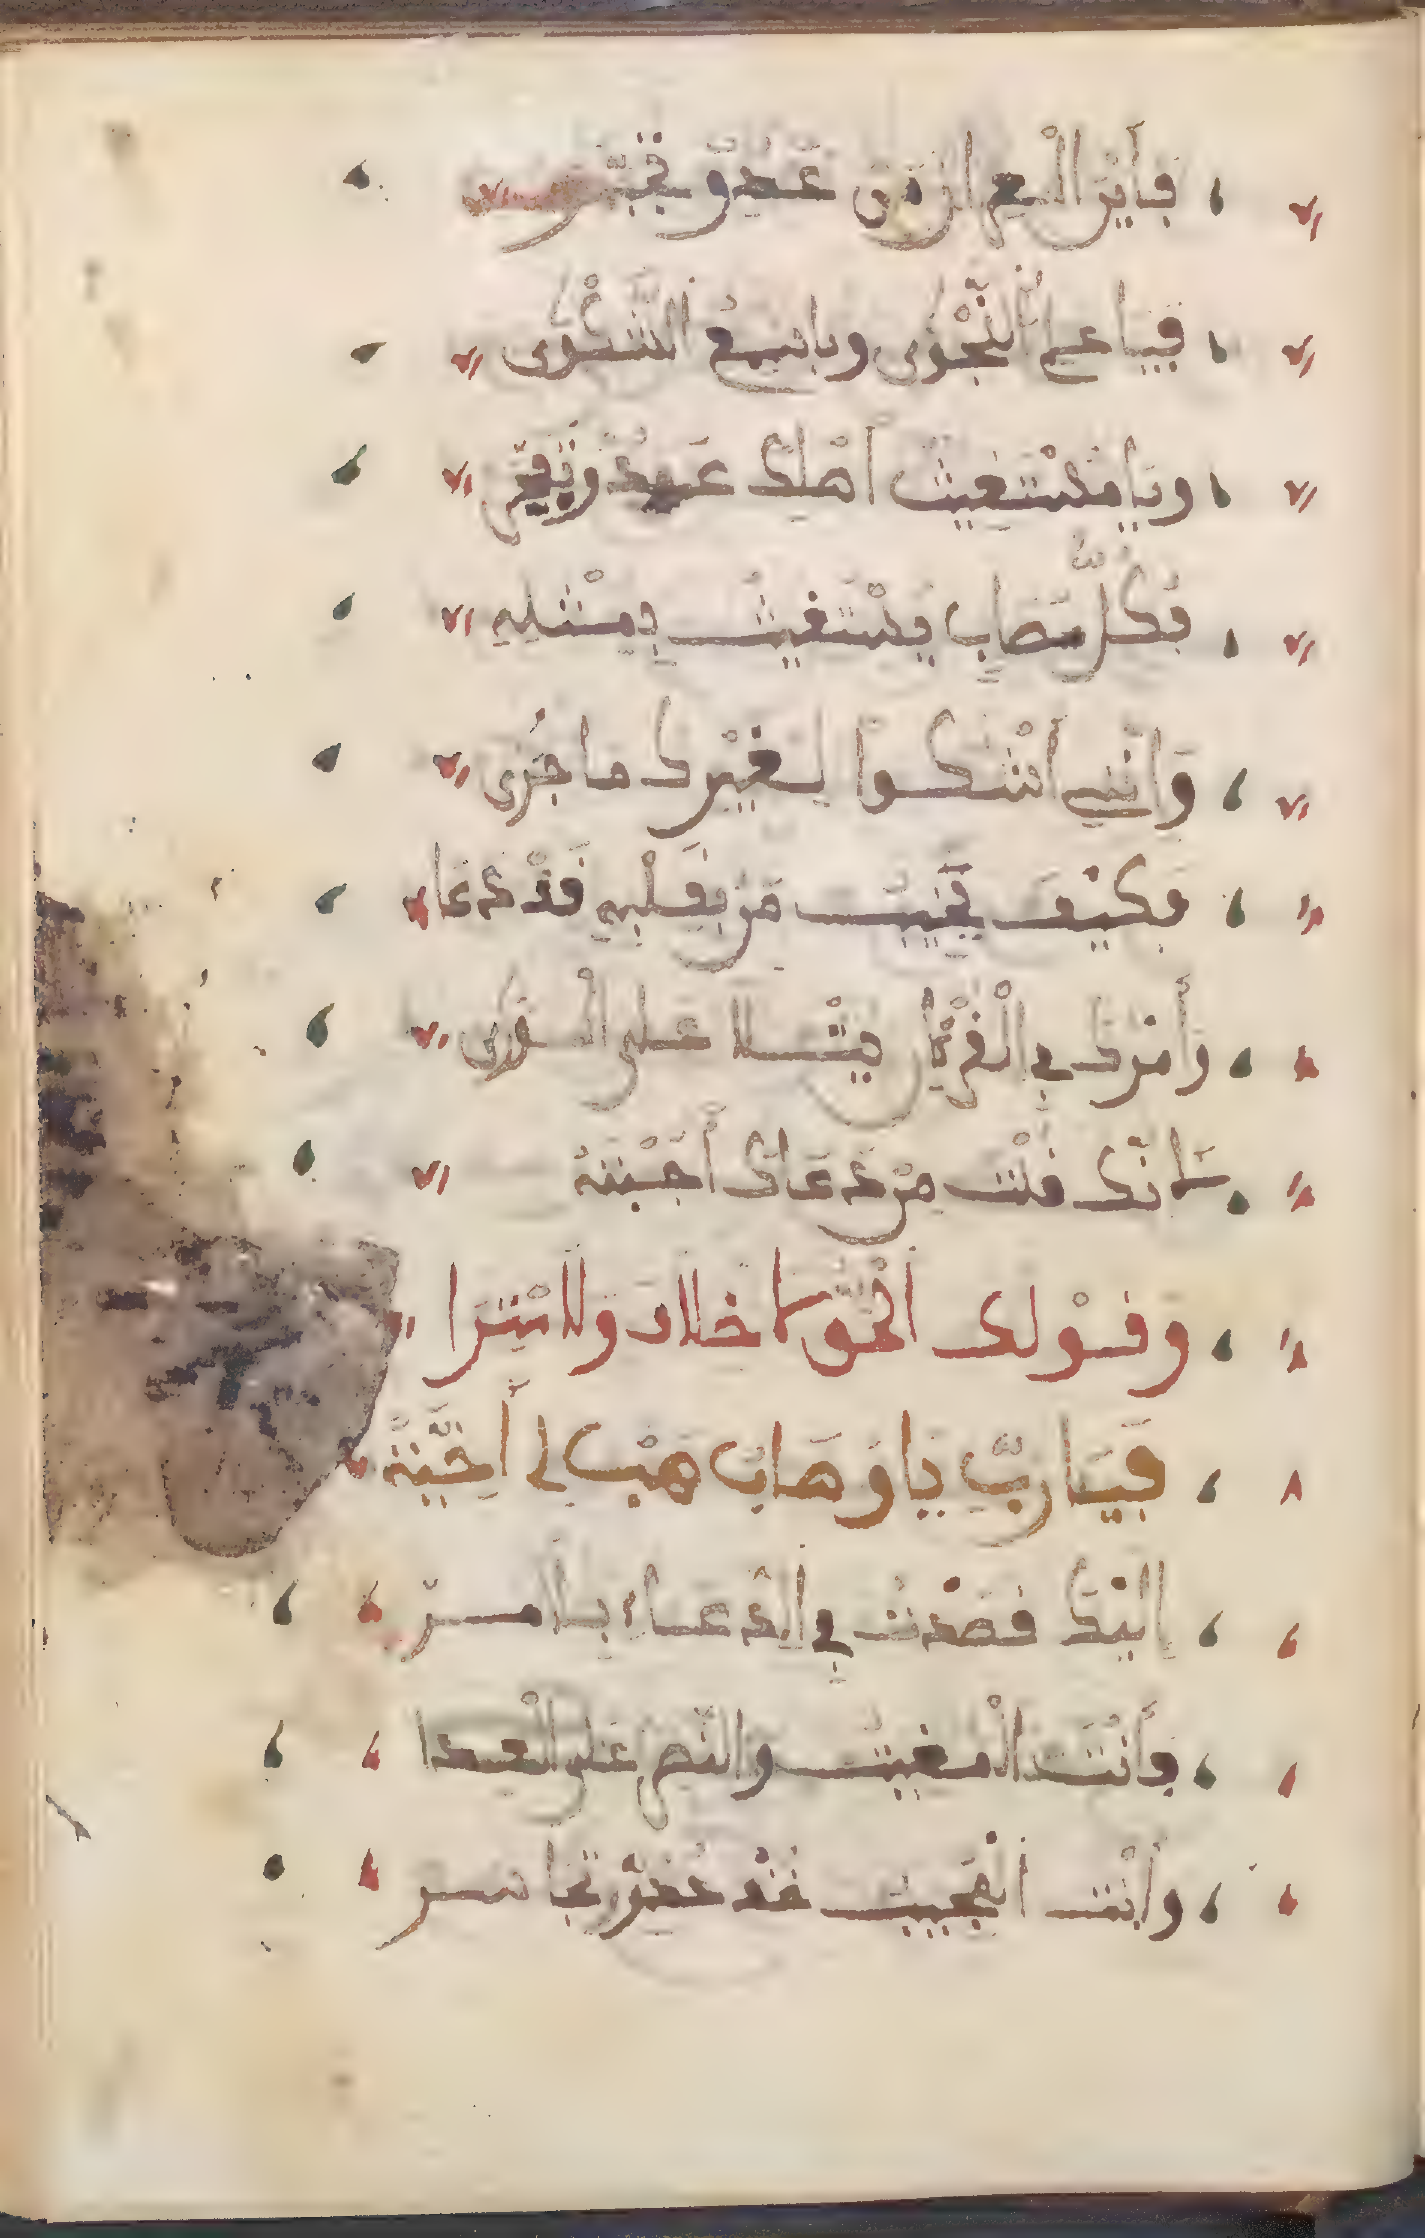 فَأَيْنَ الْمَفَرُّ مِنْ عَدُوٍّ
فَيَا عَالِمَ النَّجْوَى وَيَا سَامِعَ الشَّكْوَى
وَيَا مُسْتَغِيثُ أَهْلِكْ
فَكُلُّ مُصَابٍ يَسْتَغِيثُ بِمِثْلِهِ
وَإِنِّي أَشْكُوا لِغَيْرِكَ مَا جَرَى
فَكَيْفَ يَخِيبُ مَنْ بِقَلْبِهِ قَدْ دَعَا
وَأَمْرُكَ فِي الْقُرْآنِ يُتْلَا عَلَى الْوَرَى
كَأَنَّكَ قُلْتَ مَنْ دَعَاكَ أَجَبْتَهُ
وَقَوْلُكَ الْحَقُّ كَمَا خِلَافَ وَلَا مِرَا
فَيَا رَبِّ يَا وَهَّابُ هَبْ لِي
إِلَيْكَ قَصَدْتُ فِي الدُّعَاءِ بِلَا
فَأَنْتَ الْمُغِيثُ وَالنَّصْرُ عَلَى الْعِدَا
وَأَنْتَ الْمُجِيبُ قَدْ